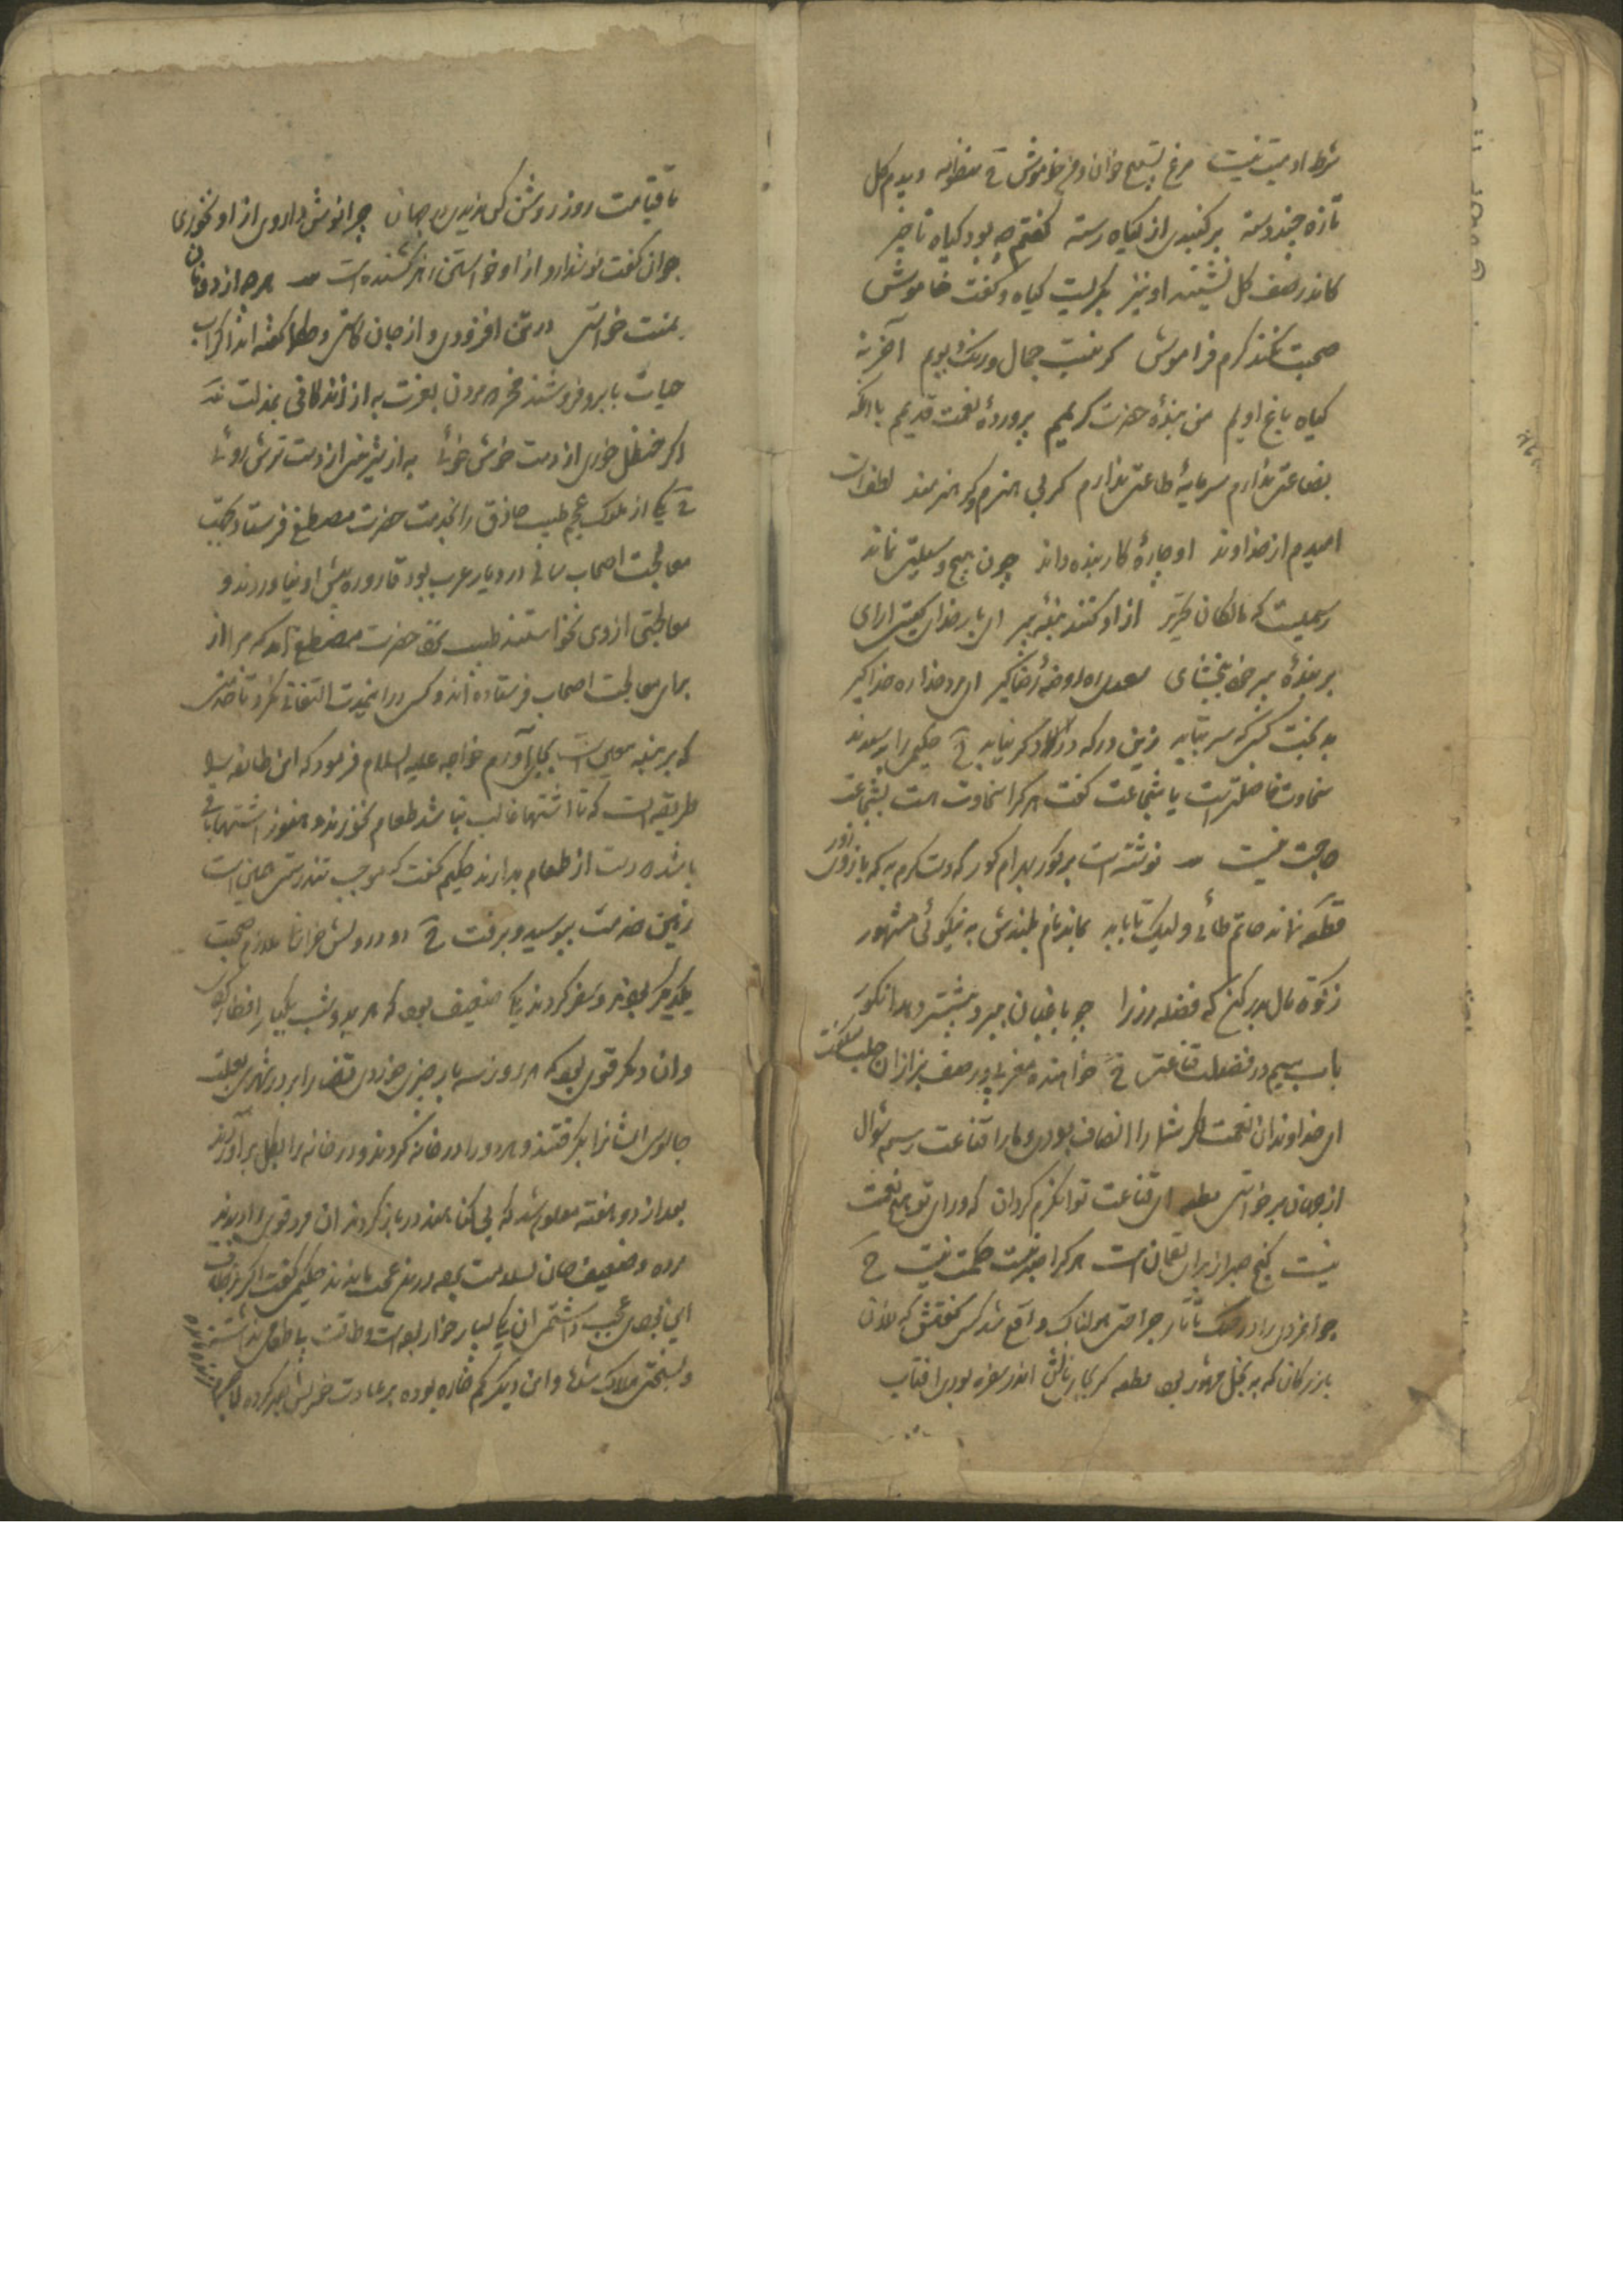 شرط ادمیت نیست مرغ تسبیح خوان و من خاموش ح منظومه دیدم کل
تازه چند دسته بر کنبدی از کیاه رسته کفتم چه بود کیاه ناچیز
کاندر صف کل نشیند او نیز بکریست کیاه و کفت خاموش
صحبت نکند کرم فراموش کر نیست جمال و رنک و بویم آخر نه
کیاه باغ اویم من بندهٔ حضرت کریمم پروردهٔ نعمت قدیمم با انکه
بضاعتی ندارم سرمایهٔ طاعتی ندارم کر بی هنرم و کر هنرمند لطف است
امیدم از خداوند او چارهٔ کار بنده داند چون هیچ وسیلتش نماند
رسمیست که مالکان تحریر ازاد کنند بندهٔ پیر ای بار خدای کیتی ارای
بر بندهٔ پیر خود ببخشای سعدی ره کعبهٔ رضا کیر ای مرد خدا ره خدا کیر
بدبخت کسی که سر بتابد زین در که دری دکر نیابد ح حکیمی را پرسیدند
سخاوت فاضلتر است یا شجاعت کفت هر کرا سخاوت است بشجاعت
حاجت نیست نوشته است بر کور بهرام کور که دست کرم به که بازوی زور
قطعه نماند حاتم طائی و لیک تا بابد بماند نام بلندش به نیکوئی مشهور
زکوة مال بدر کن که فضله رز را چو باغبان ببرد بیشتر دهد انکور
باب سیم در فضیلت قناعت ح خواهنده مغربی در صف بزازان حلب میکفت
ای خداوندان نعمت اکر شما را انصاف بودی و ما را قناعت رسم سؤال
از جهان برخواستی قطعه ای قناعت توانکرم کردان که ورای تو هیچ نعمت
نیست کنج صبر اختیار لقمان است هر کرا صبر نیست حکمت نیست ح
جوانمردی را در جنک تاتار جراحتی هولناک واقع شد کسی کفتش که فلان
بازرکان که به بخل مشهور بود قطعه کر بجای نانش اندر سفره بودی افتاب
تا قیامت روز روشن کس ندیدی در جهان چرا نوش داروی از او نخوری
جوان کفت نوشدارو از او خواستن زهر کشنده است هر چه از دونان
بمنت خواستی در تن افزودی و از جان کاستی و حکما کفته اند اکر اب
حیات بابرو فروشند نخرم مردن بعزت به از زندکانی بمذلت
اکر حنظل خوری از دست خوش خوئی به از شیرینی از دست ترش روئی
ح یکی از ملوک عجم طبیب حاذق را بخدمت حضرت مصطفی فرستاد بجهت
معالجت اصحاب سالی در دیار عرب بود قاروره پیش او نیاوردند و
معالجتی از وی نخواستند طبیب نزد حضرت مصطفی آمد که مرا از
برای معالجت اصحاب فرستاده اند و کس در این مدت التفاتی نکرد تا خدمتی
که بر بنده معین است بجای آورم خواجه علیه السلام فرمود که این طائفه را
طریقه است که تا اشتها غالب نباشد طعام نخورند و هنوز اشتها باقی
باشد دست از طعام بدارند حکیم کفت که موجب تندرستی همین است
زمین خدمت ببوسید و برفت ح دو درویش خراسانی ملازم صحبت
یکدیکر بودند و سفر کردند یکی ضعیف بود که هر دو شب یکبار افطار کردی
وان دیکر قوی بود که هر روز سه بار چیزی خوردی قضا را بر در شهری بعلت
جاسوسی ایشانرا بکرفتند و هر دو را در خانه کردند و در خانه را بکل براوردند
بعد از دو هفته معلوم شد که بی کناهند در باز کردند ان مرد قوی را دیدند
مرده و ضعیف جان بسلامت برده در این عجب ماندند حکیمی کفت اکر بر خلاف
این بودی عجب داشتمی ان یکی بسیار خوار بوده است و طاقت بیطعامی نداشت
و بسختی هلاک شد و این دیکر کم خواره بوده بر عادت خویش صبر کرده